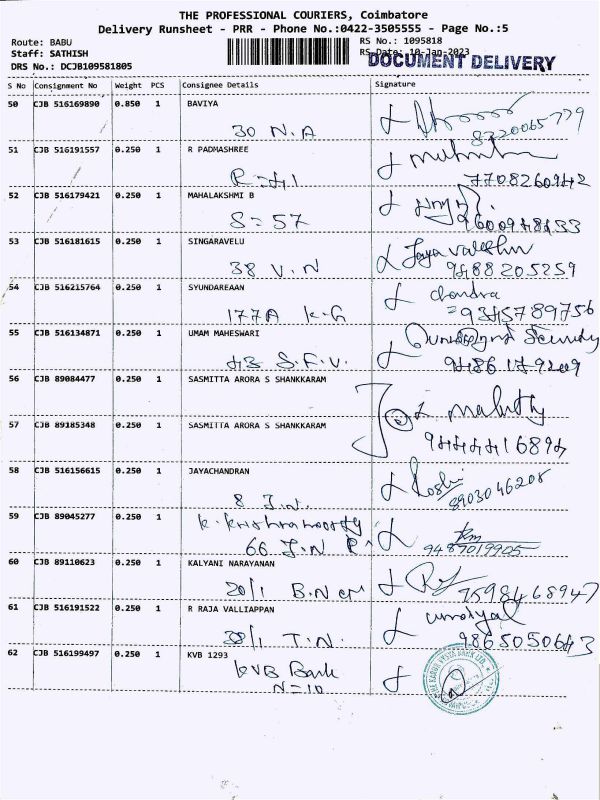 THE PROFESSIONAL COURIERS, Coimbatore
Delivery Runsheet - PRR - Phone No.:0422-3505555 - Page No.:5
Route: BABU
RS No.: 1095818
Staff: SATHISH
RS Date: 10-Jan-2023
DOCUMENT DELIVERY
DRS No.: DCJB109581805
S No Consignment No Weight PCS Consignee Details Signature
50 CJB 516169890 0.850 1 BAVIYA
30 N.A
8220065779
51 CJB 516191557 0.250 1 R PADMASHREE
7708260942
52 CJB 516179421 0.250 1 MAHALAKSHMI B
S=57
53 CJB 516181615 0.250 1 SINGARAVELU
38 V.N
9488205259
54 CJB 516215764 0.250 1 SYUNDAREAAN chandra
177A K.G =9345789756
55 CJB 516134871 0.250 1 UMAM MAHESWARI
43 S.F.V.
56 CJB 89084477 0.250 1 SASMITTA ARORA S SHANKKARAM
57 CJB 89185348 0.250 1 SASMITTA ARORA S SHANKKARAM
9444416894
58 CJB 516156615 0.250 1 JAYACHANDRAN
8 J.N. 8903046208
59 CJB 89045277 0.250 1 K. Krishnamoorthy
66 J.N 9487019905
60 CJB 89110623 0.250 1 KALYANI NARAYANAN
20/1 B.N 7598468947
61 CJB 516191522 0.250 1 R RAJA VALLIAPPAN
38/1 J.N. 9865050643
62 CJB 516199497 0.250 1 KVB 1293
KVB Bank
N=10